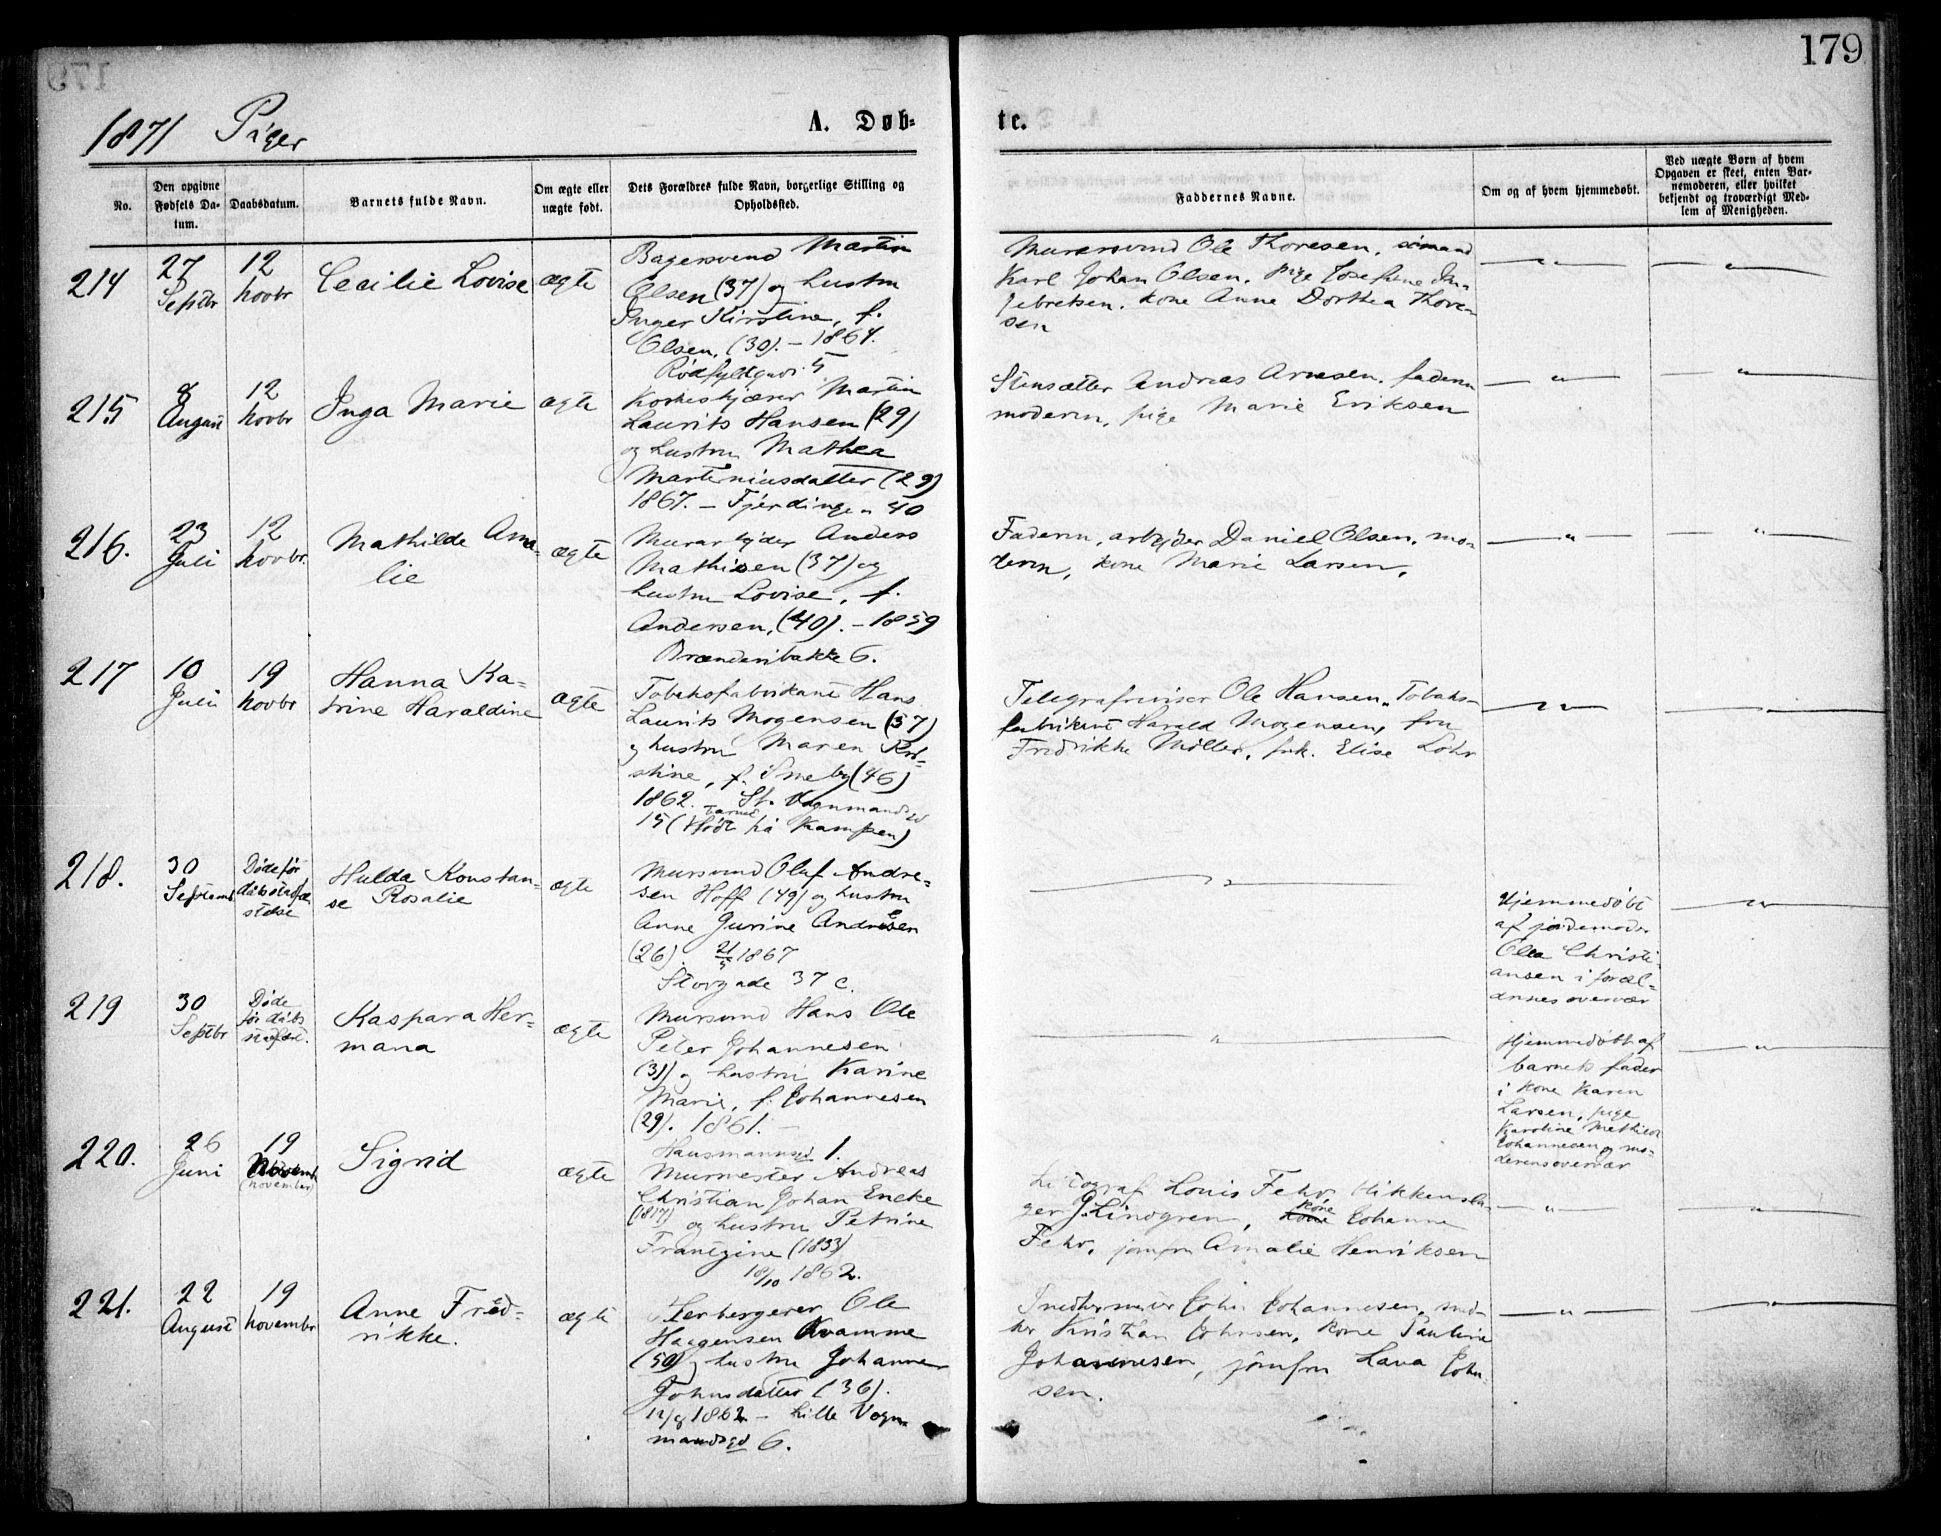 179
1871 Piger
A. Døb-
te.
No.
Den opgivne
Fødsels Da-
tum.
Daabsdatum.
Barnets fulde Navn.
Om ægte eller
uægte født.
Dets Forældres fulde Navn, borgerlige Stilling og
Opholdssted.
Faddernes Navne.
Om og af hvem hjemmedøbt.
Ved uægte Børn af hvem
Opgaven er skeet, enten Bar-
nemoderen, eller hvilket
bekjendt og troværdigt Med-
lem af Menigheden.
214
27
Septbr
12
novbr
Cecilie Lovise
ægte
Bagersvend Martin
Olsen (37) og hustru
Inger Kirstine, f.
Olsen, (30). – 1864.
Rødfyldgad. 5
Murersvend Ole Thoresen, sømand
Karl Johan Olsen, pige Josefine In-
gebretsen, kone Anne Dorthea Thore-
sen
215
8
August
12
novbr
Inga Marie
ægte
Martin
Laurits Hansen (29)
og hustru Mathea
Martiniusdatter (29)
1867. – Fjerdingen 40
Stensætter Andreas Arnesen, faderen
moderen, pige Marie Eriksen
216.
23
Juli
12
novbr.
Mathilde Ama-
lie
ægte
Anders
Mathisen (37) og
hustru Lovise, f.
Andersen, (40). – 1859
Brænderibakke 6.
Faderen, arbejder Daniel Olsen, mo-
deren, kone Marie Larsen,
217
10
Juli
19
novbr
Hanna Ka-
trine Haraldine
ægte
Tobaksfabrikant Hans
Laurits Mogensen (37)
og hustru Maren Kri-
stine, f. Smeby (46)
1862. St. Vognmandsgd
15 (barnet født på Kampen)
Telegrafreviser Ole Hansen, Tobaks-
fabrikant Harald Mogensen, fru
Fredrikke Møller, frk. Elise Lohr
218.
30
Septemb
Døde før
dåbs stadfæ
stelse
Hulda Konstan-
se Rosalie
ægte
Mursvend Oluf Andre-
sen Hoff (49) og hustru
Anne Gurine Andresen
(26). 21/5 1867
Storgade 37 c.
Hjemmedøbt
af jordemoder
Olea Christi-
ansen i foræl-
drenes overvær
219
30
Septbr
Døde
før dåbs
stadfæst.
Kaspara Her-
mana
ægte
Mursvend Hans Ole
Peter Johannesen
(31) og hustru Karine
Marie, f. Johannesen
(29). 1861. –
Hausmannsgd 1.
Hjemmedøbt af
barnets fader
i kone Karen
Larsen, pige
Karoline Mathilde
Johannesen og mo-
derens overvær
220.
26
Juni
19
Novemb
(november)
Sigrid
ægte
Murmester Andreas
Christian Johan Encke
(1817) og hustru Petrine
Frantzine (1833)
18/10 1862.
Litograf Louis Fehr, blikkensla-
ger J. Lindgren, kone Johanne
Fehr, jomfru Amalie Henriksen
221.
22
August
19
november
Anne Fred-
rikke.
ægte
Herbergerer Ole
Haagensen Kvamme
(50) og hustru Johanne
Johnsdatter (36).
12/9 1862 – Lille Vogn-
mandsgd 6.
Snedkermester John Johannesen, sned-
ker Kristian Johnsen, kone Pauline
Johannesen, jomfru Lava John-
sen.